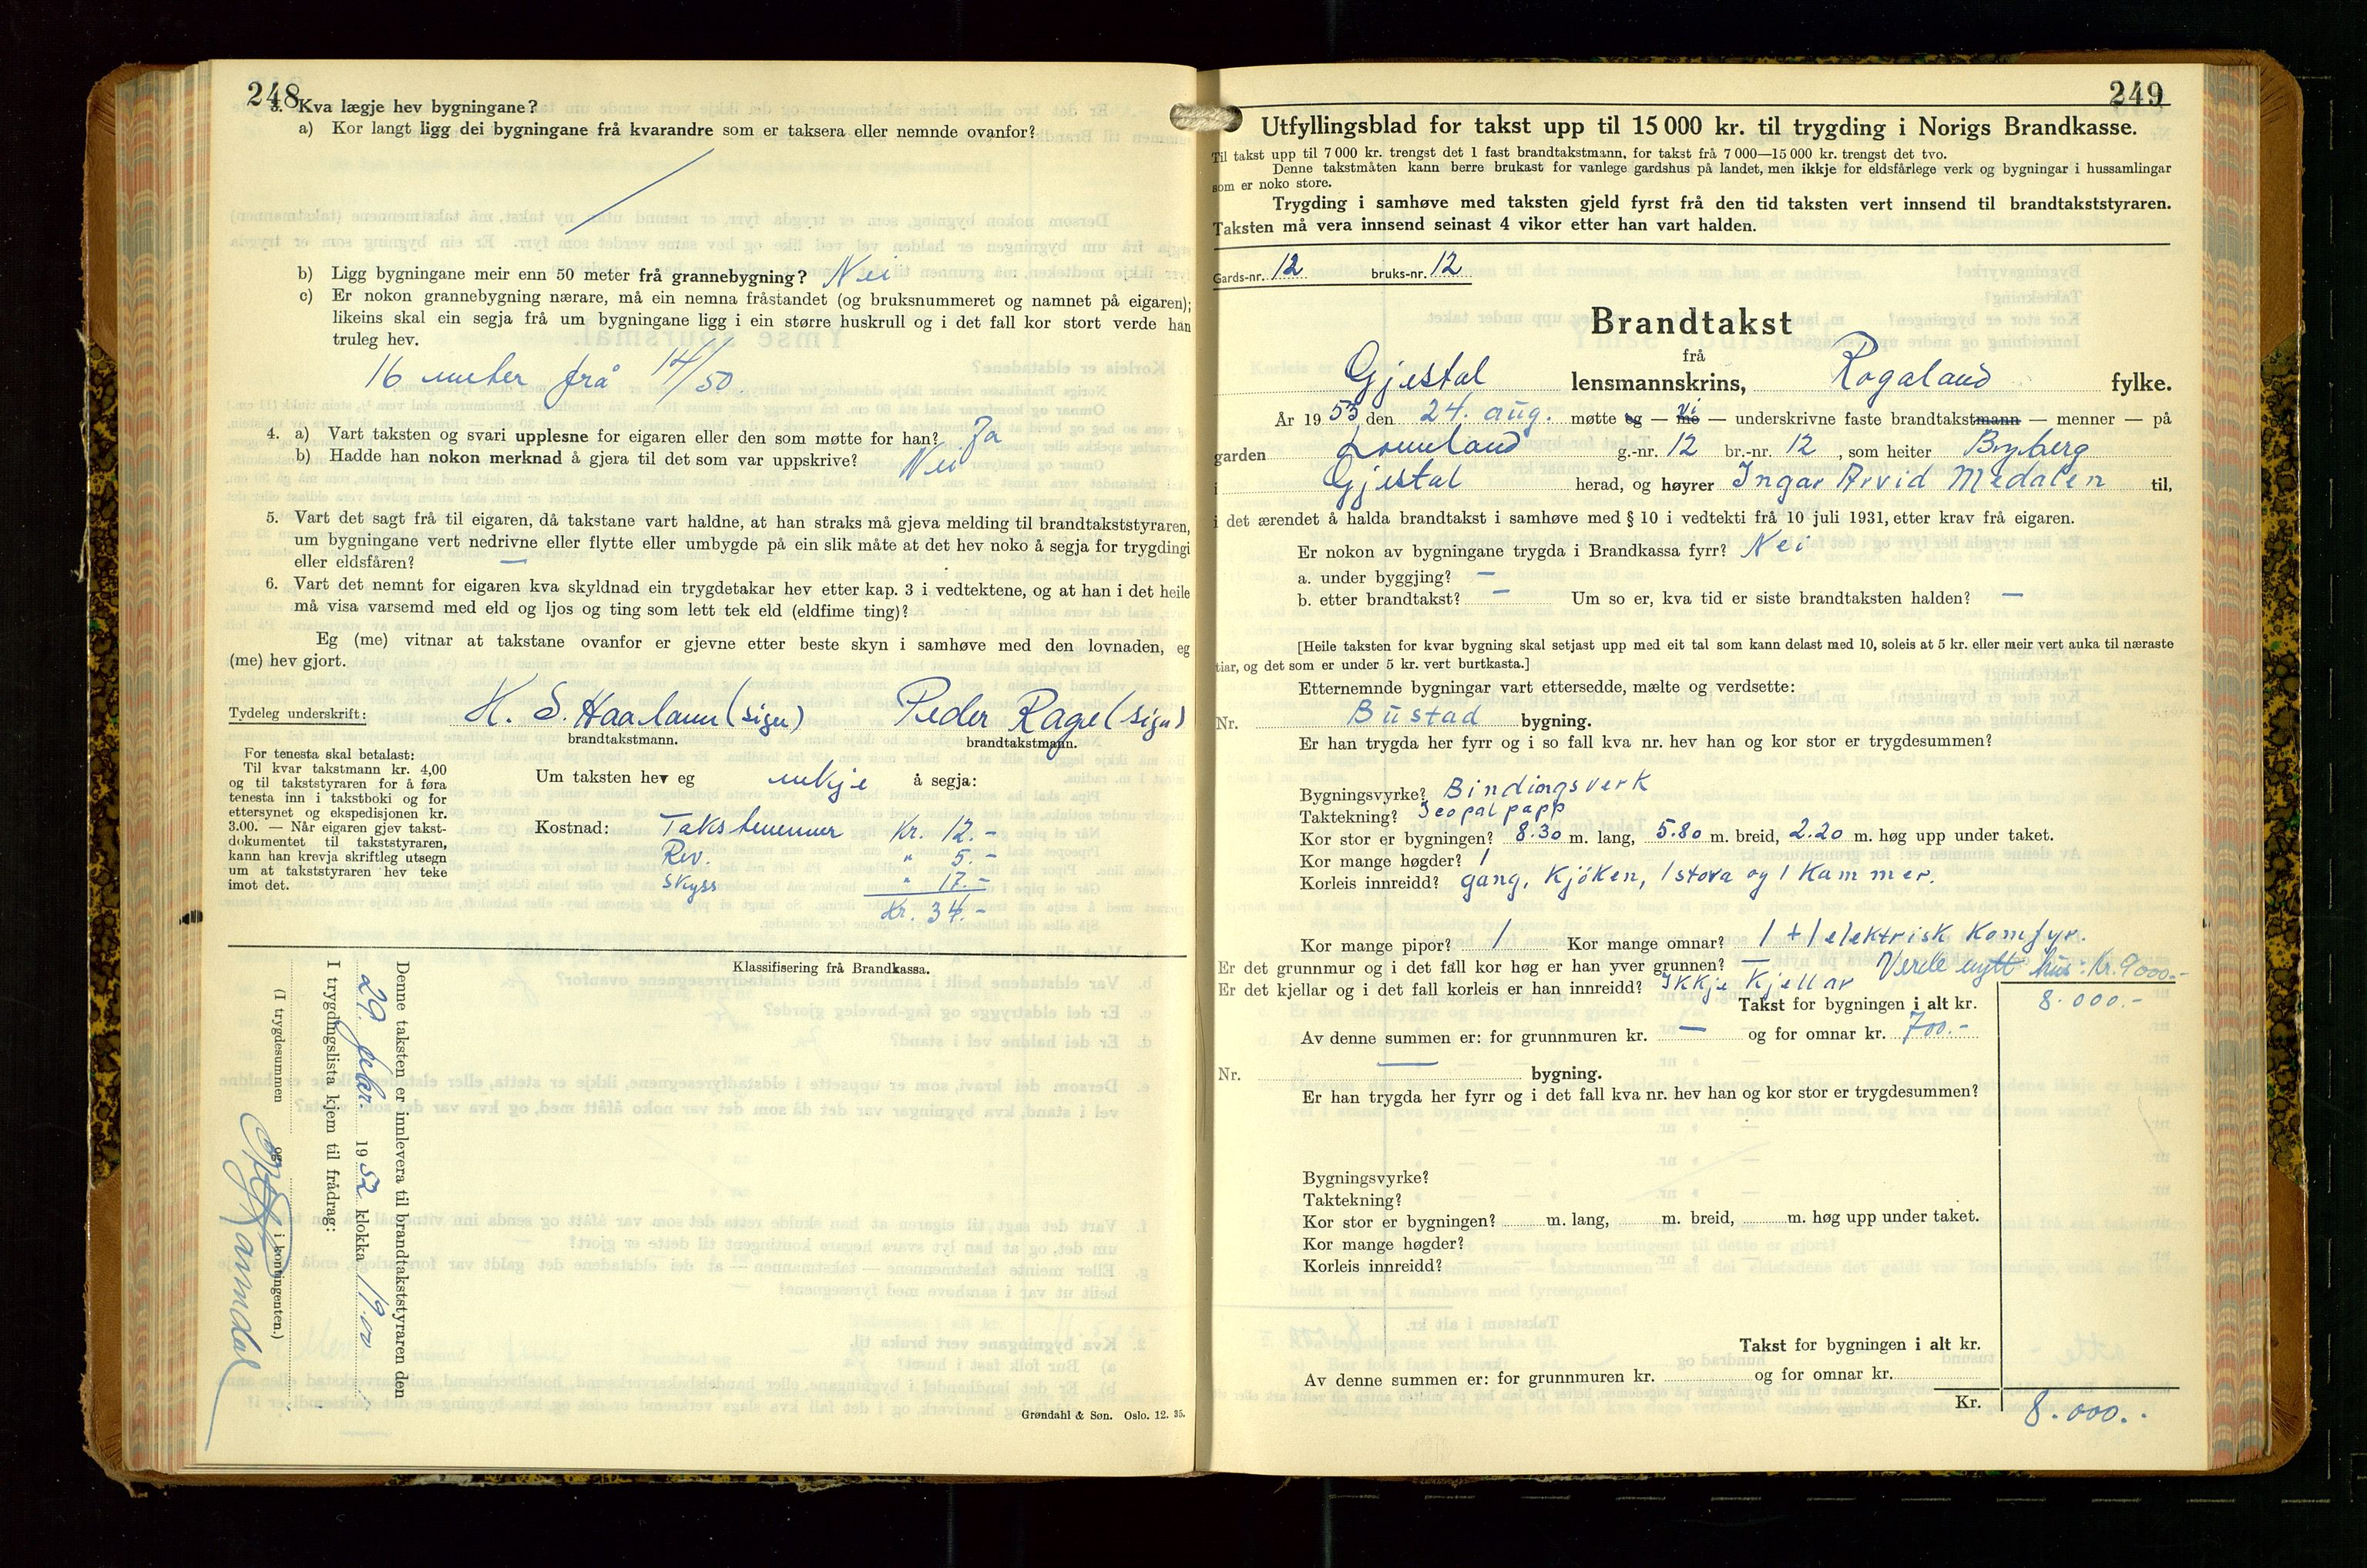 248
3. Kva lægje hev bygningane?
a) Kor langt ligg dei bygningane frå kvarandre som er taksera eller nemnde ovanfor?
b) Ligg bygningane meir enn 50 meter frå grannebygning? Nei
c) Er nokon grannebygning nærare, må ein nemna fråstandet (og bruksnummeret og namnet på eigaren);
likeins skal ein segja frå um bygningane ligg i ein større huskrull og i det fall kor stort verde han
truleg hev.
16 meter frå 14/50
4. a) Vart taksten og svari upplesne for eigaren eller den som møtte for han? Ja
b) Hadde han nokon merknad å gjera til det som var uppskrive? Nei
5. Vart det sagt frå til eigaren, då takstane vart haldne, at han straks må gjeva melding til brandtakststyraren,
um bygningane vert nedrivne eller flytte eller umbygde på ein slik måte at det hev noko å segja for trygdingi
eller eldsfåren? —
6. Vart det nemnt for eigaren kva skyldnad ein trygdetakar hev etter kap. 3 i vedtektene, og at han i det heile
må visa varsemd med eld og ljos og ting som lett tek eld (eldfime ting)?
Eg (me) vitnar at takstane ovanfor er gjevne etter beste skyn i samhøve med den lovnaden, eg
(me) hev gjort.
Tydeleg underskrift: H. S. Haaland (sign) Peder Rage (sign)
brandtakstmann. brandtakstmann.
For tenesta skal betalast:
Til kvar takstmann kr. 4,00
og til takststyraren for å føra
tenesta inn i takstboki og for
ettersynet og ekspedisjonen kr.
3.00. — Når eigaren gjev takst-
dokumentet til takststyraren,
kann han krevja skriftleg utsegn
um at takststyraren hev teke
imot det.
Um taksten hev eg inkje å segja:
Kostnad: Takstmenner Kr. 12.-
Rev. " 5.-
Skyss " 17.-
Kr. 34.-
Klassifisering frå Brandkassa.
Denne taksten er innlevera til brandtakststyraren den
29 febr. 1952 klokka 19.00
I trygdingslista kjem til frådrag:
(I trygdesummen og i kontingenten.)
Grøndahl & Søn. Oslo. 12. 35.
249
Utfyllingsblad for takst upp til 15 000 kr. til trygding i Norigs Brandkasse.
Til takst upp til 7 000 kr. trengst det 1 fast brandtakstmann, for takst frå 7 000—15 000 kr. trengst det tvo.
Denne takstmåten kann berre brukast for vanlege gardshus på landet, men ikkje for eldsfårlege verk og bygningar i hussamlingar
som er noko store.
Trygding i samhøve med taksten gjeld fyrst frå den tid taksten vert innsend til brandtakststyraren.
Taksten må vera innsend seinast 4 vikor etter han vart halden.
Gards-nr. 12 bruks-nr. 12
Brandtakst
frå
Gjestal lensmannskrins, Rogaland fylke.
År 1953 den 24. aug. møtte eg — vi me — underskrivne faste brandtakstmann — menner — på
garden g.-nr. 12 br.-nr. 12, som heiter Byberg
i Gjestal herad, og høyrer Ingar Arvid Medalen til,
i det ærendet å halda brandtakst i samhøve med § 10 i vedtekti frå 10 juli 1931, etter krav frå eigaren.
Er nokon av bygningane trygda i Brandkassa fyrr? Nei
a. under byggjing? —
b. etter brandtakst? — Um so er, kva tid er siste brandtaksten halden? —
[Heile taksten for kvar bygning skal setjast upp med eit tal som kann delast med 10, soleis at 5 kr. eller meir vert auka til næraste
tiar, og det som er under 5 kr. vert burtkasta.]
Etternemnde bygningar vart ettersedde, mælte og verdsette:
Nr. Bustad bygning.
Er han trygda her fyrr og i so fall kva nr. hev han og kor stor er trygdesummen?
Bygningsvyrke? Bindingsverk
Taktekning? Icopalpapp
Kor stor er bygningen? 8.30 m. lang, 5.80 m. breid, 2.20 m. høg upp under taket.
Kor mange høgder? 1
Korleis innreidd? gang, Kjöken, 1 stova og 1 Kammer.
Kor mange pipor? 1 Kor mange omnar? 1 + 1 elektrisk Komfyr.
Er det grunnmur og i det fall kor høg er han yver grunnen? — Verde nytt hus: Kr. 9000.-
Er det kjellar og i det fall korleis er han innreidd? Ikkje Kjellar
Takst for bygningen i alt kr. 8.000.-
Av denne summen er: for grunnmuren kr. — og for omnar kr. 700.-
Nr. — bygning.
Er han trygda her fyrr og i det fall kva nr. hev han og kor stor er trygdesummen?
Bygningsvyrke?
Taktekning?
Kor stor er bygningen? m. lang, m. breid, m. høg upp under taket.
Kor mange høgder?
Korleis innreidd?
Takst for bygningen i alt kr.
Av denne summen er: for grunnmuren kr. og for omnar kr.
Kr. 8.000.-